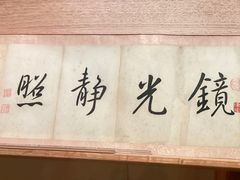 鏡光静照